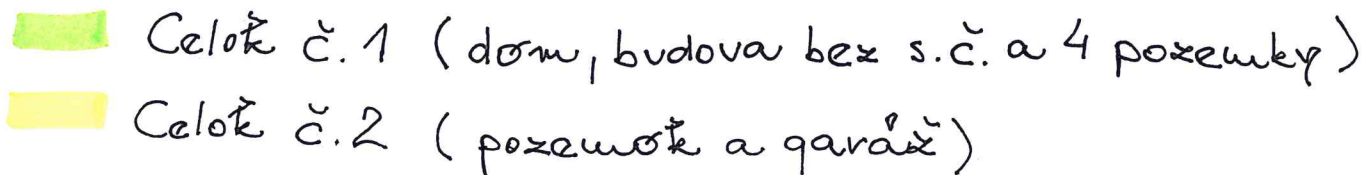 Celok č.1 (dom, budova bez s.č. a 4 pozemky)
Celok č.2 (pozemok a garáž)